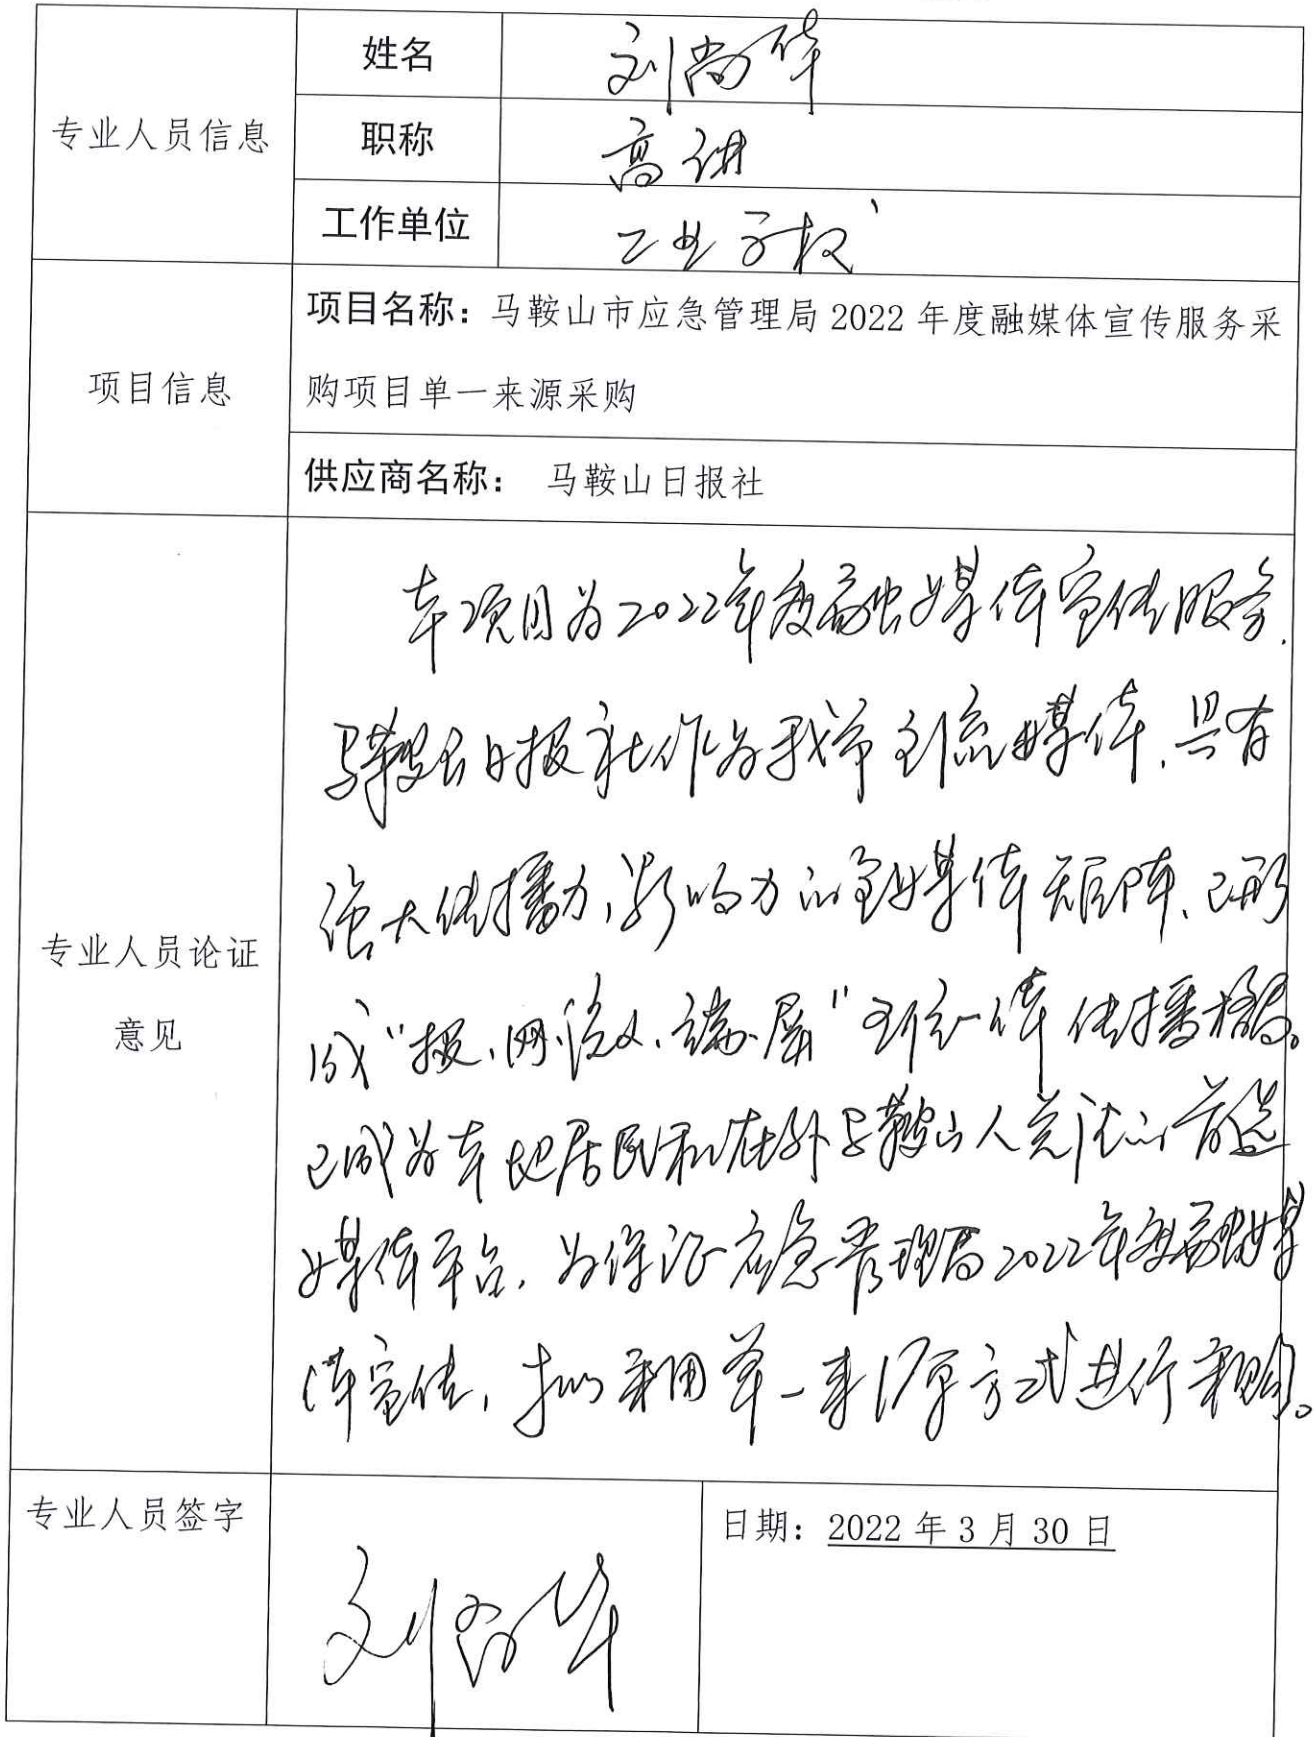 专业人员信息
姓名
刘尚华
职称
高讲
工作单位
工业学校
项目信息
项目名称：马鞍山市应急管理局 2022 年度融媒体宣传服务采
购项目单一来源采购
供应商名称： 马鞍山日报社
专业人员论证
意见
本项目为2022年度融媒体宣传服务.
马鞍山日报社作为我市主流媒体.具有
强大传播力,影响力的全媒体矩阵.已形
成"报.网.微.端.屏"五位一体传播格局。
已成为本地居民和在外马鞍山人关注的首选
媒体平台.为保证应急管理局2022年度融媒
体宣传,拟采用单一来源方式进行采购。
专业人员签字
刘尚华
日期：2022 年 3 月 30 日